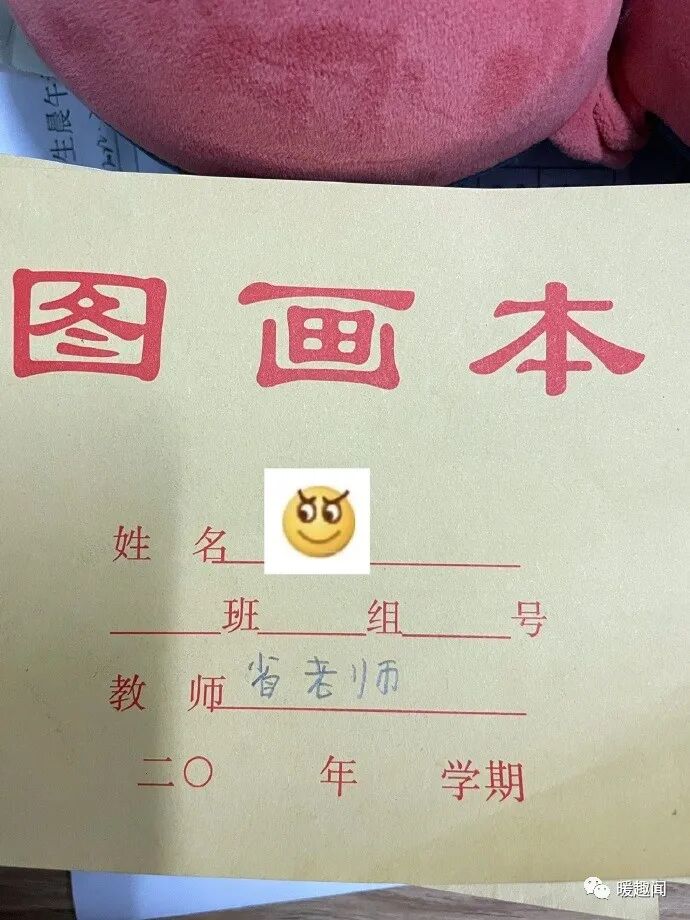 生晨午
图画本
姓 名
班 组 号
教 师 省老师
二〇 年 学期
暖趣闻